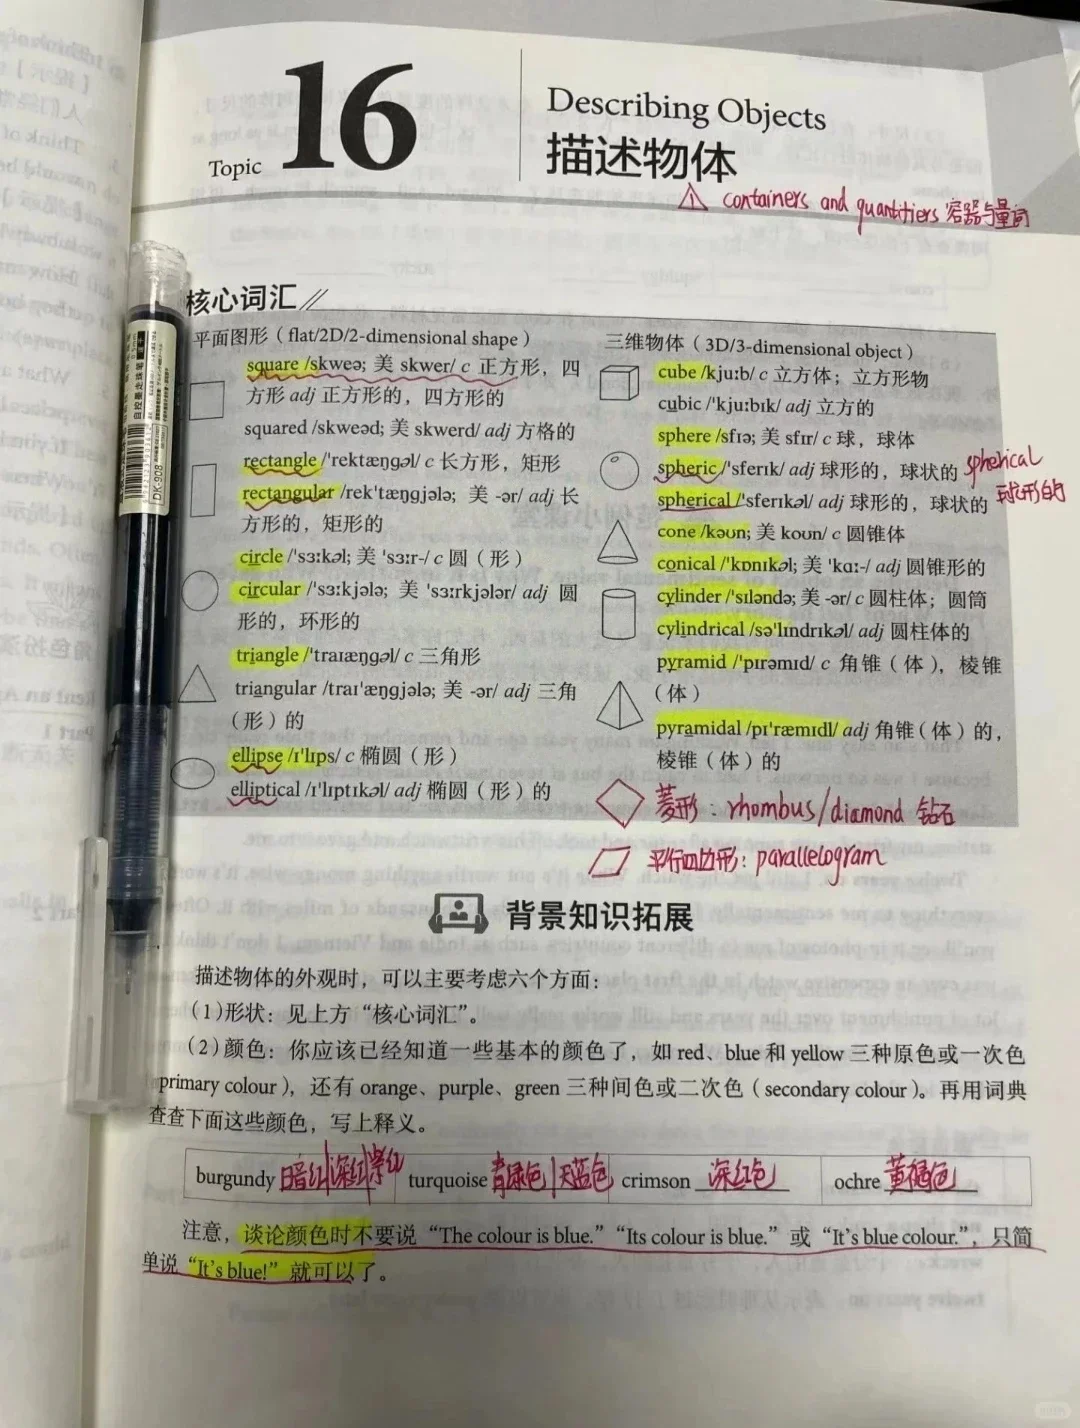 Topic 16
Describing Objects
描述物体
containers and quantitiers 容器与量词
核心词汇
平面图形（flat/2D/2-dimensional shape）
square /skweə; 美 skwer/ c 正方形，四
方形 adj 正方形的，四方形的
squared /skweəd; 美 skwerd/ adj 方格的
rectangle /'rektæŋgəl/ c 长方形，矩形
rectangular /rek'tæŋgjələ; 美 -ər/ adj 长
方形的，矩形的
circle /'sɜːkəl; 美 'sɜːr-/ c 圆（形）
circular /'sɜːkjələ; 美 'sɜːrkjələr/ adj 圆
形的，环形的
triangle /'traɪæŋgəl/ c 三角形
triangular /traɪ'æŋgjələ; 美 -ər/ adj 三角
（形）的
ellipse /ɪ'lɪps/ c 椭圆（形）
elliptical /ɪ'lɪptɪkəl/ adj 椭圆（形）的
三维物体（3D/3-dimensional object）
cube /kjuːb/ c 立方体；立方形物
cubic /'kjuːbɪk/ adj 立方的
sphere /sfɪə; 美 sfɪr/ c 球，球体
spheric /'sferɪk/ adj 球形的，球状的
spherical /'sferɪkəl/ adj 球形的，球状的
spherical
球形的
cone /kəʊn; 美 koʊn/ c 圆锥体
conical /'kɒnɪkəl; 美 'kɑː-/ adj 圆锥形的
cylinder /'sɪləndə; 美 -ər/ c 圆柱体；圆筒
cylindrical /sə'lɪndrɪkəl/ adj 圆柱体的
pyramid /'pɪrəmɪd/ c 角锥（体），棱锥
（体）
pyramidal /pɪ'ræmɪdl/ adj 角锥（体）的，
棱锥（体）的
菱形：rhombus/diamond 钻石
平行四边形：parallelogram
背景知识拓展
描述物体的外观时，可以主要考虑六个方面：
（1）形状：见上方“核心词汇”。
（2）颜色：你应该已经知道一些基本的颜色了，如 red、blue 和 yellow 三种原色或一次色
primary colour），还有 orange、purple、green 三种间色或二次色（secondary colour）。再用词典
查查下面这些颜色，写上释义。
burgundy 暗红|深红|紫红 turquoise 青绿色|天蓝色 crimson 深红色 ochre 黄褐色
注意，谈论颜色时不要说“The colour is blue.”“Its colour is blue.”或“It's blue colour.”，只简
单说“It's blue!”就可以了。
DK-908